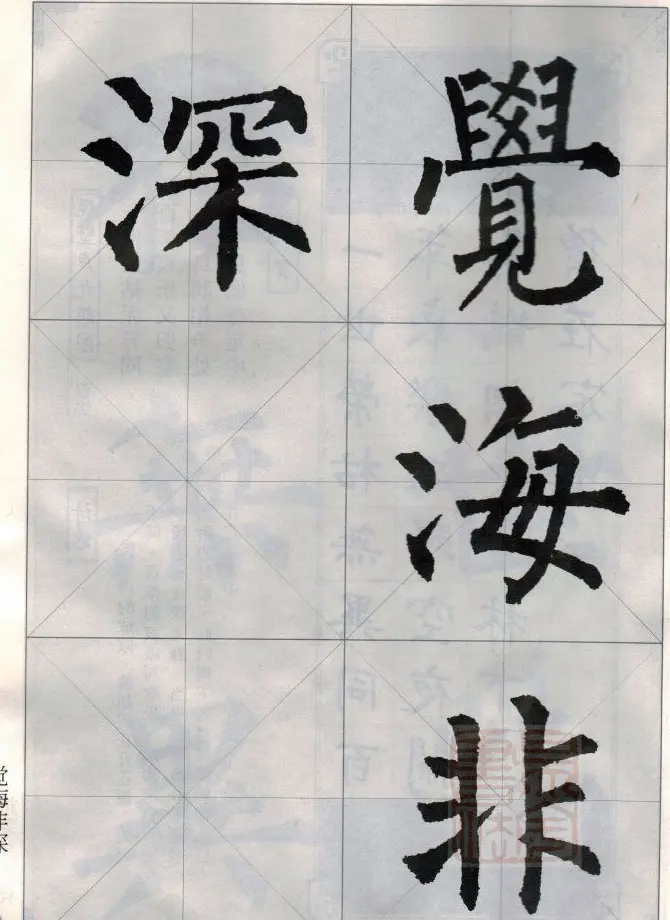 覺海非
深
觉海非深